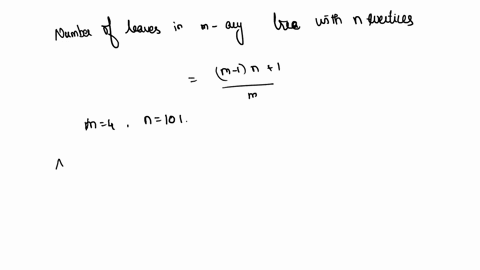 Number of leaves in m-ary tree with n vertices
= (m-1) n + 1 / m
m=4 , n=101.
^